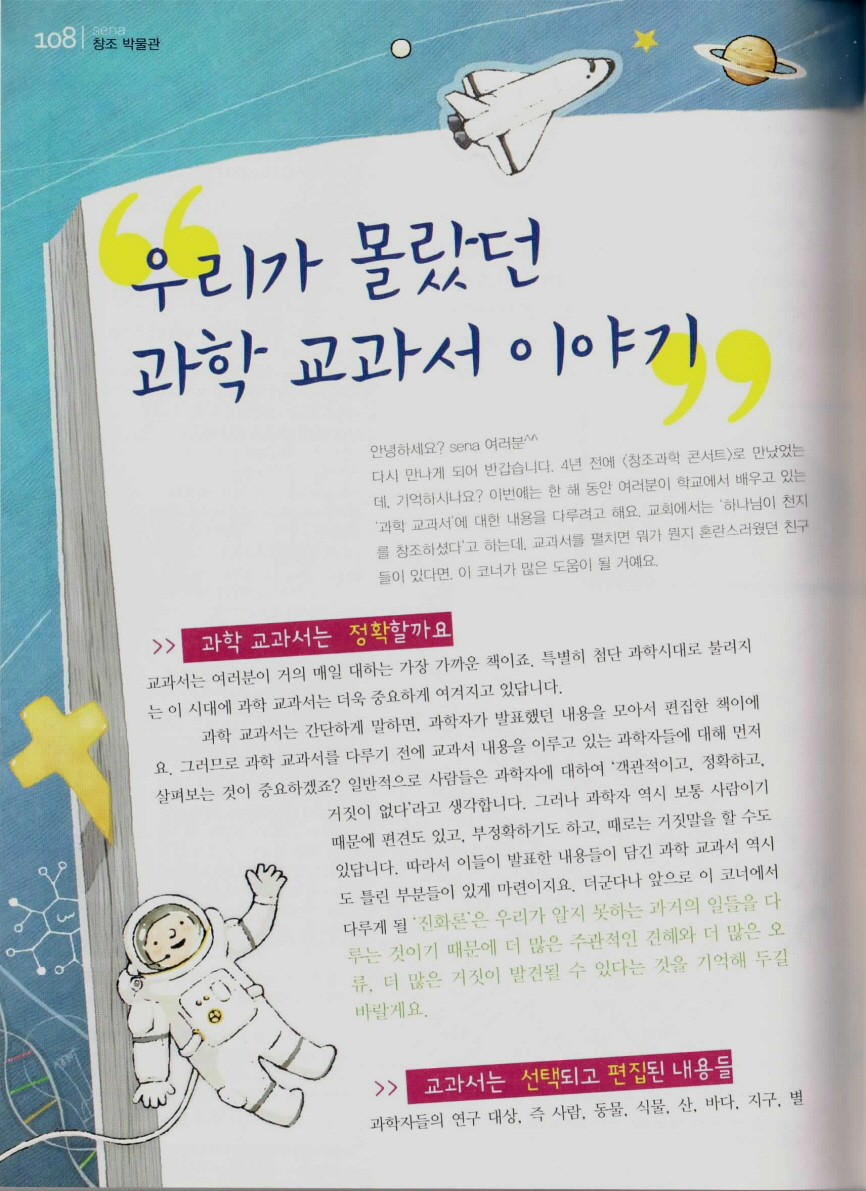 108 | sena
창조 박물관
“우리가 몰랐던
과학 교과서 이야기”
안녕하세요? sena 여러분^^
다시 만나게 되어 반갑습니다. 4년 전에 〈창조과학 콘서트〉로 만났었는
데, 기억하시나요? 이번에는 한 해 동안 여러분이 학교에서 배우고 있는
‘과학 교과서’에 대한 내용을 다루려고 해요. 교회에서는 ‘하나님이 천지
를 창조하셨다’고 하는데, 교과서를 펼치면 뭐가 뭔지 혼란스러웠던 친구
들이 있다면, 이 코너가 많은 도움이 될 거예요.
>> 과학 교과서는 정확할까요
교과서는 여러분이 거의 매일 대하는 가장 가까운 책이죠. 특별히 첨단 과학시대로 불려지
는 이 시대에 과학 교과서는 더욱 중요하게 여겨지고 있답니다.
과학 교과서는 간단하게 말하면, 과학자가 발표했던 내용을 모아서 편집한 책이에
요. 그러므로 과학 교과서를 다루기 전에 교과서 내용을 이루고 있는 과학자들에 대해 먼저
살펴보는 것이 중요하겠죠? 일반적으로 사람들은 과학자에 대하여 ‘객관적이고, 정확하고,
거짓이 없다’라고 생각합니다. 그러나 과학자 역시 보통 사람이기
때문에 편견도 있고, 부정확하기도 하고, 때로는 거짓말을 할 수도
있답니다. 따라서 이들이 발표한 내용들이 담긴 과학 교과서 역시
도 틀린 부분들이 있게 마련이지요. 더군다나 앞으로 이 코너에서
다루게 될 ‘진화론’은 우리가 알지 못하는 과거의 일들을 다
루는 것이기 때문에 더 많은 주관적인 견해와 더 많은 오
류, 더 많은 거짓이 발견될 수 있다는 것을 기억해 두길
바랄게요.
>> 교과서는 선택되고 편집된 내용들
과학자들의 연구 대상, 즉 사람, 동물, 식물, 산, 바다, 지구, 별